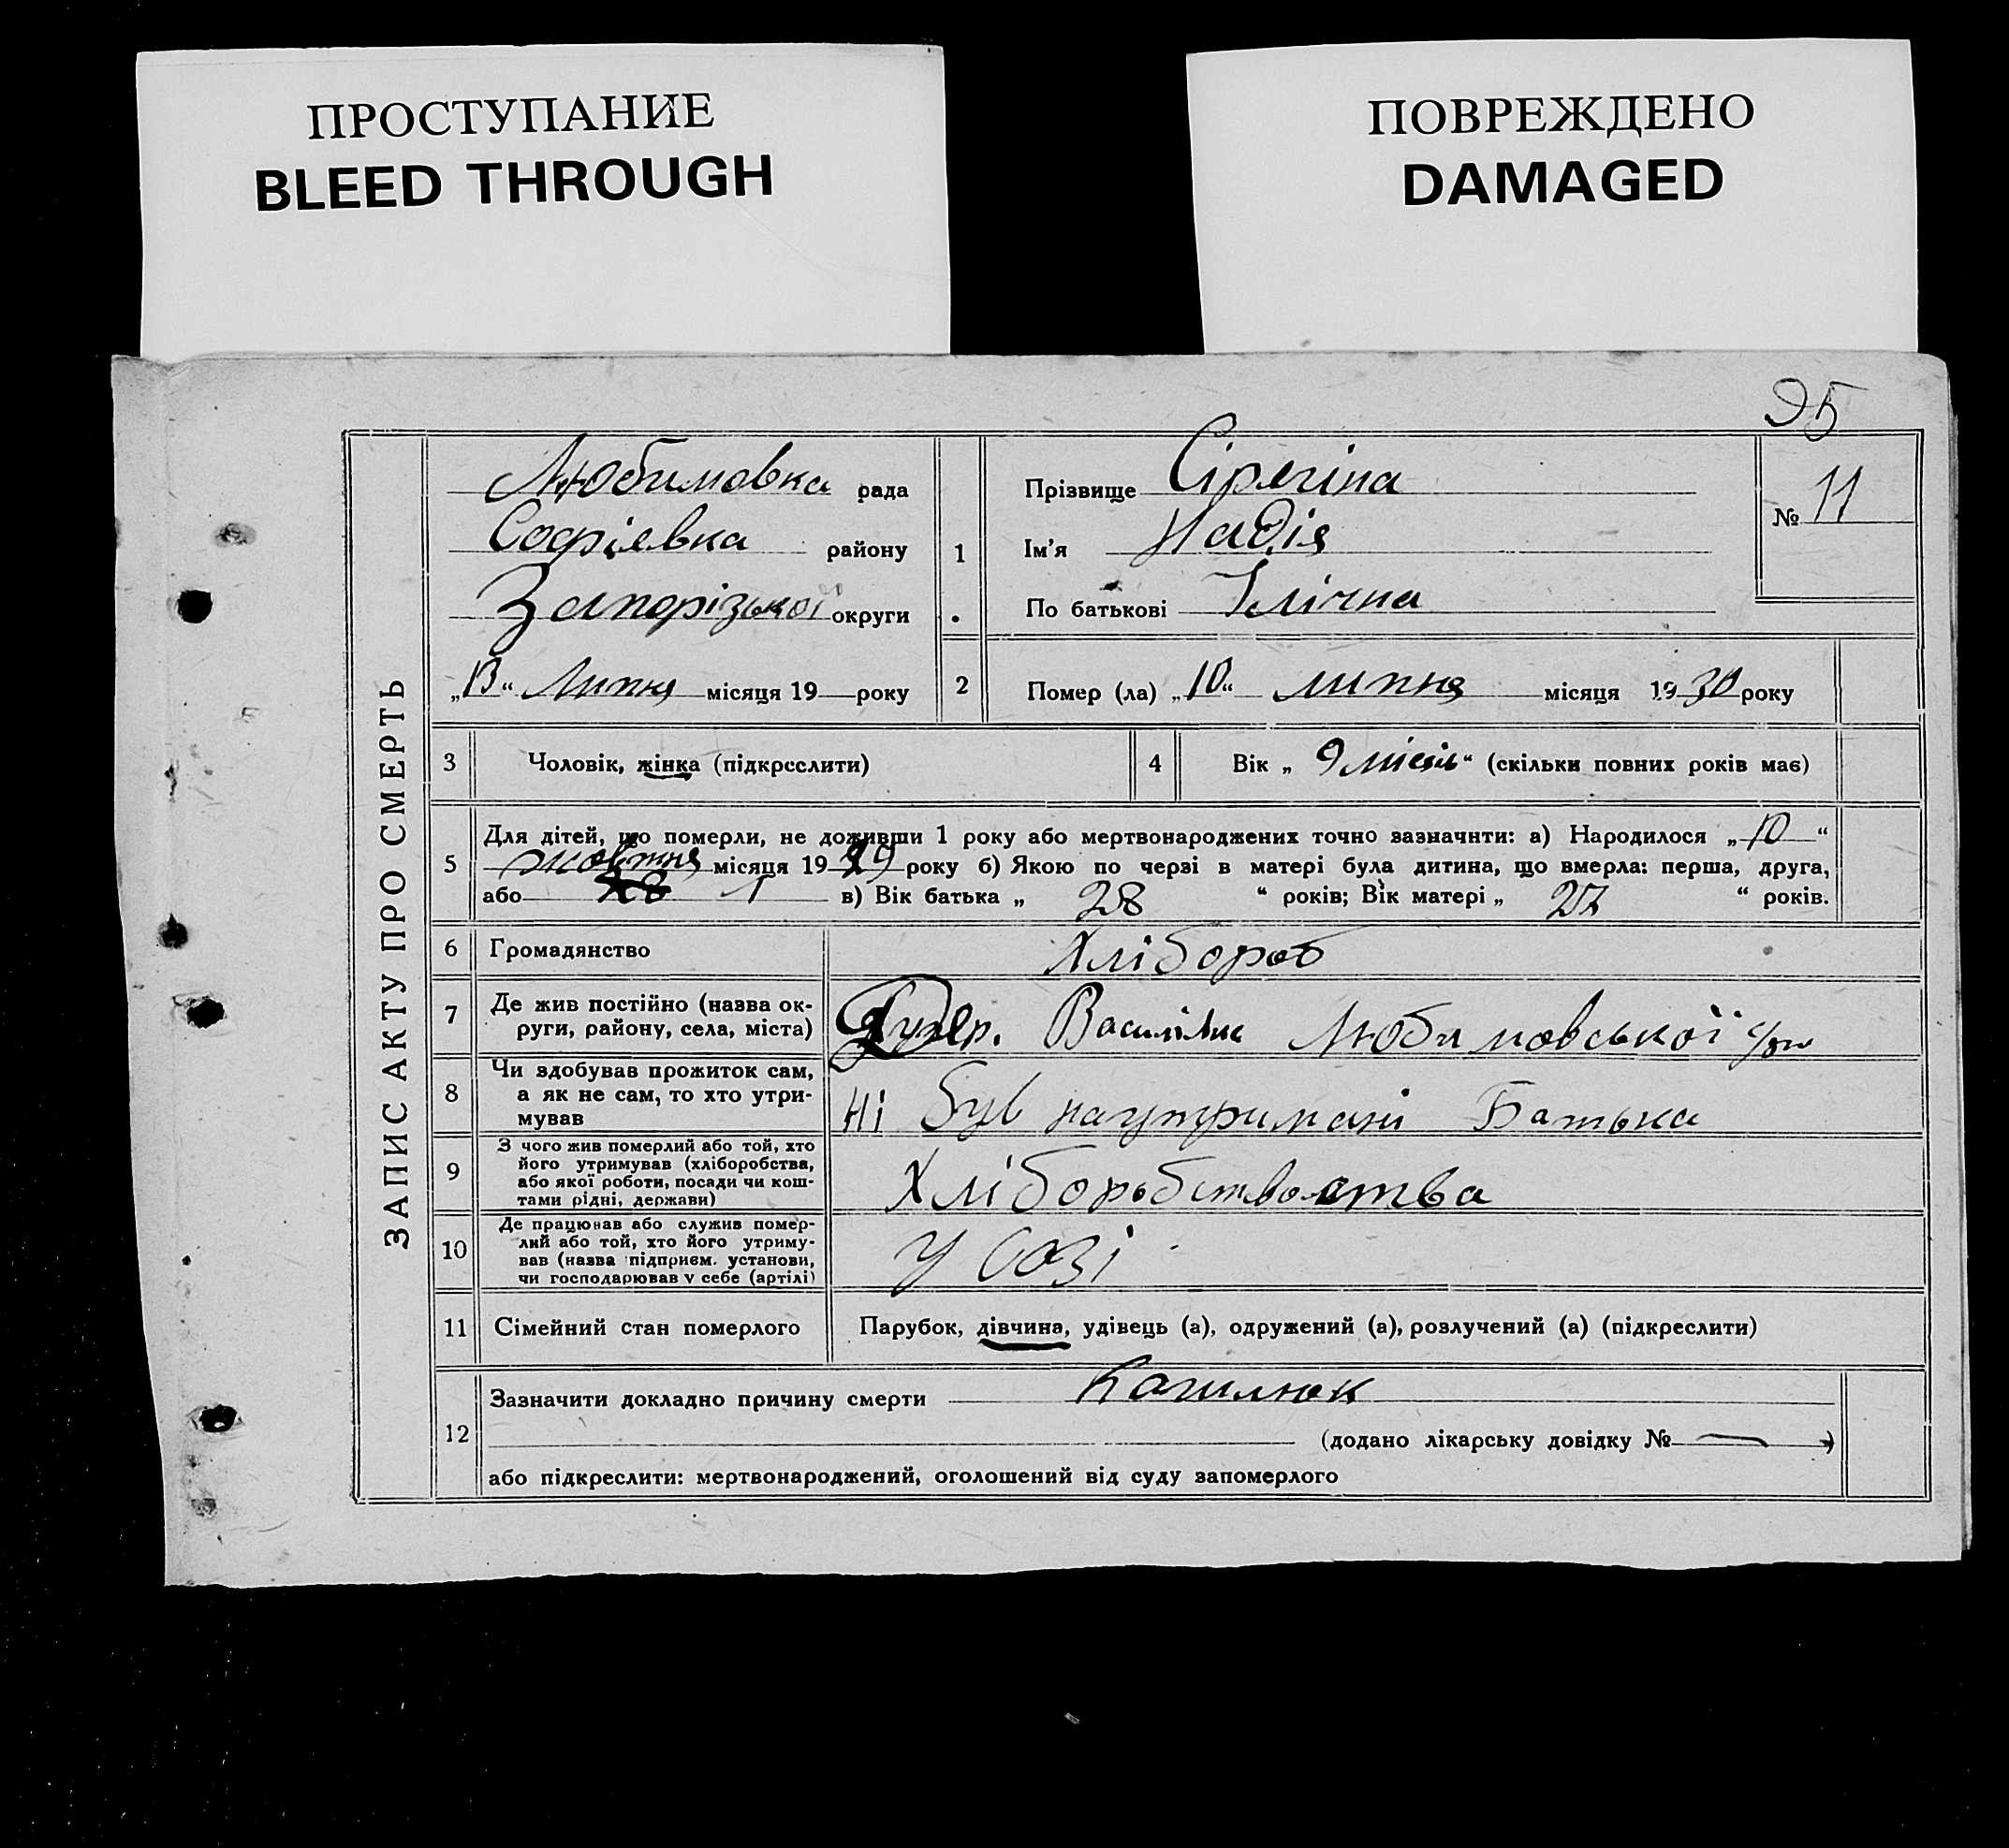 ПРОСТУПАНИЕ
BLEED THROUGH
ПОВРЕЖДЕНО
DAMAGED
95
ЗАПИС АКТУ ПРО СМЕРТЬ
Любимовка рада
Софіевка району
Запорізької округи
„13“ Липня місяця 19 року
1
Прізвище Сірягіна
Ім'я Надія
По батькові Ілічна
№ 11
2 Помер (ла) „10“ липня місяця 1930 року
3 Чоловік, жінка (підкреслити)
4 Вік „ 9 місяць “ (скільки повних років має)
5 Для дітей, що померли, не доживши 1 року або мертвонароджених точно зазначити: а) Народилося „ 10 “
жовтня місяця 1929 року б) Якою по черзі в матері була дитина, що вмерла: перша, друга,
або 1 в) Вік батька „ 28 “ років; Вік матері „ 27 “ років.
6 Громадянство Хлібороб
7 Де жив постійно (назва ок-
руги, району, села, міста) Василівка Любимовської
8 Чи здобував прожиток сам,
а як не сам, то хто утри-
мував Ні був наутримані Батька
9 З чого жив померлий або той, хто
його утримував (хліборобства,
або якої роботи, посади чи кош-
тами рідні, держави)
10 Де працював або служив помер-
лий або той, хто його утриму-
вав (назва підприєм. установи,
чи господарював у себе (артілі) У Созі
11 Сімейний стан померлого Парубок, дівчина, удівець (а), одружений (а), розлучений (а) (підкреслити)
12 Зазначити докладно причину смерти Кашлюк
(додано лікарську довідку № — )
або підкреслити: мертвонароджений, оголошений від суду запомерлого